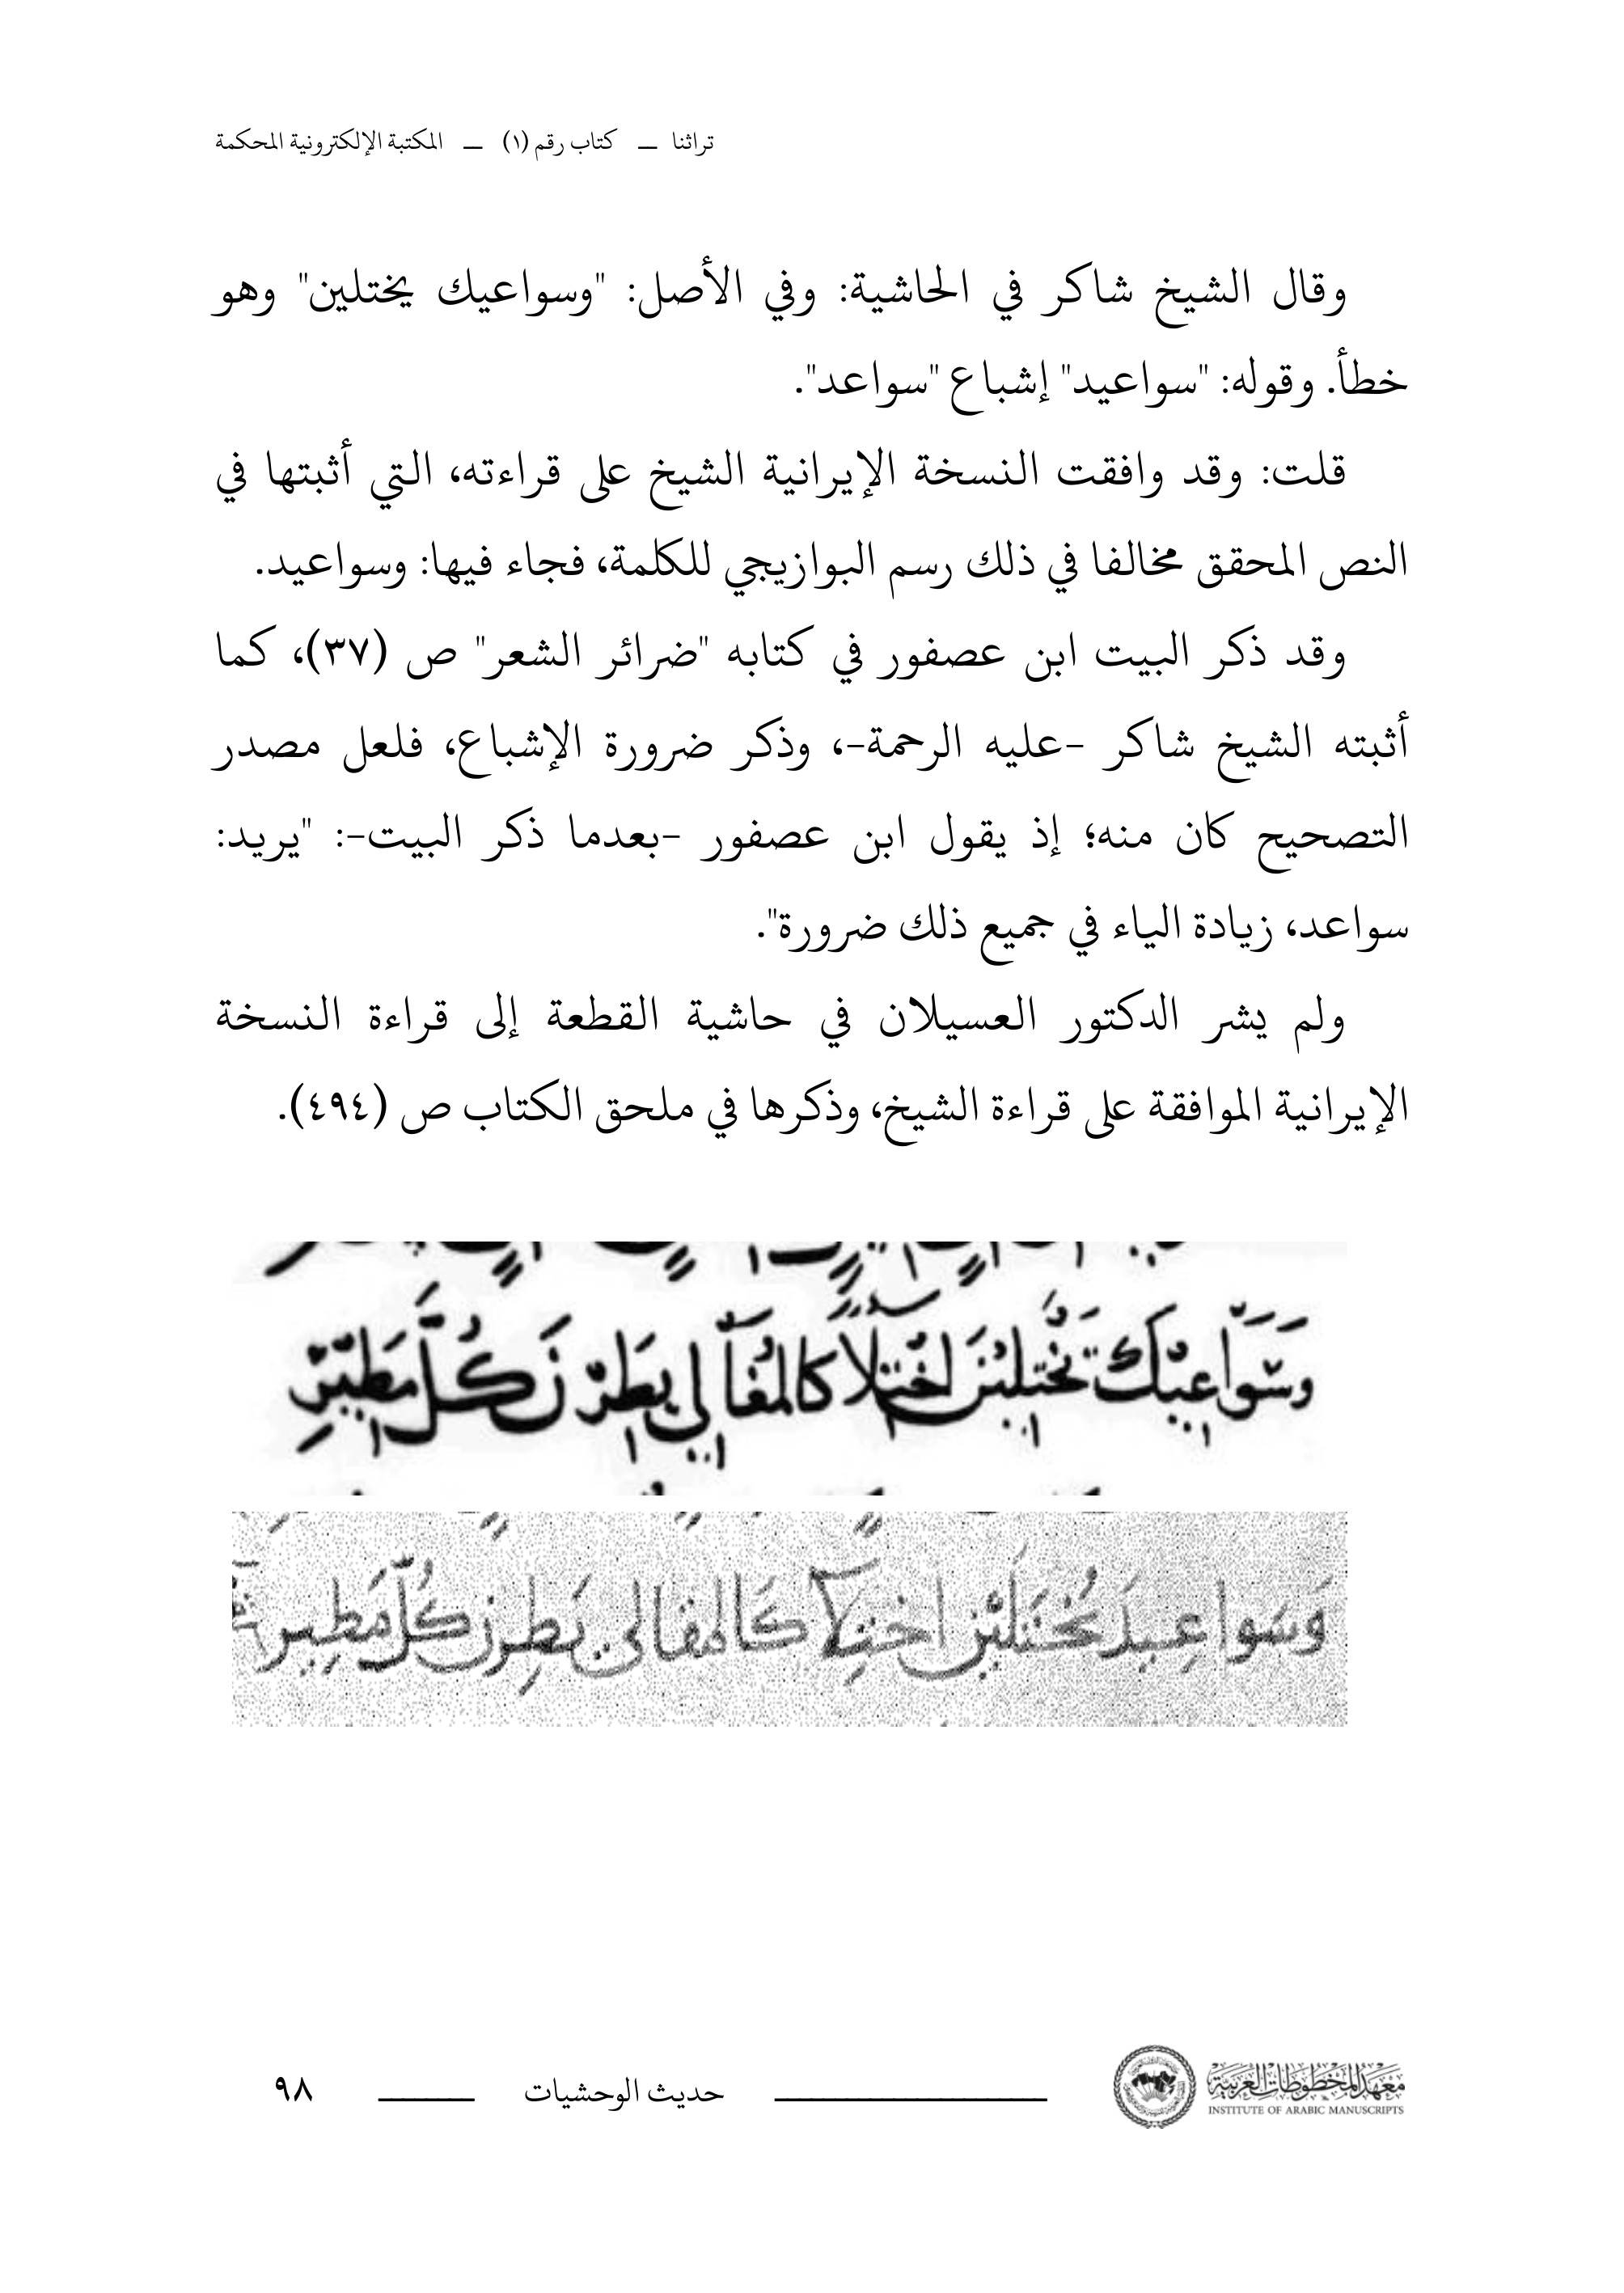 تراثنا — كتاب رقم (١) — المكتبة الإلكترونية المحكمة
وقال الشيخ شاكر في الحاشية: وفي الأصل: "وسواعيك يختلين" وهو
خطأ. وقوله: "سواعيد" إشباع "سواعد".
قلت: وقد وافقت النسخة الإيرانية الشيخ على قراءته، التي أثبتها في
النص المحقق مخالفا في ذلك رسم البوازيجي للكلمة، فجاء فيها: وسواعيد.
وقد ذكر البيت ابن عصفور في كتابه "ضرائر الشعر" ص (٣٧)، كما
أثبته الشيخ شاكر -عليه الرحمة-، وذكر ضرورة الإشباع، فلعل مصدر
التصحيح كان منه؛ إذ يقول ابن عصفور -بعدما ذكر البيت-: "يريد:
سواعد، زيادة الياء في جميع ذلك ضرورة".
ولم يشر الدكتور العسيلان في حاشية القطعة إلى قراءة النسخة
الإيرانية الموافقة على قراءة الشيخ، وذكرها في ملحق الكتاب ص (٤٩٤).
وسواعيك تختلين اختلا كالمغالي يطرن كل مطير
وسواعيد يختلين اختلا كالمغالي يطرن كل مطير
معهد المخطوطات العربية
INSTITUTE OF ARABIC MANUSCRIPTS
حديث الوحشيات
٩٨